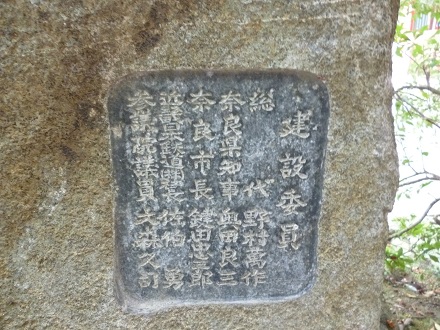 建設委員
総代 野村萬作
奈良県知事 奥田良三
奈良市長 鍵田忠三郎
近畿日本鉄道社長 佐伯勇
参議院議員 大森久司